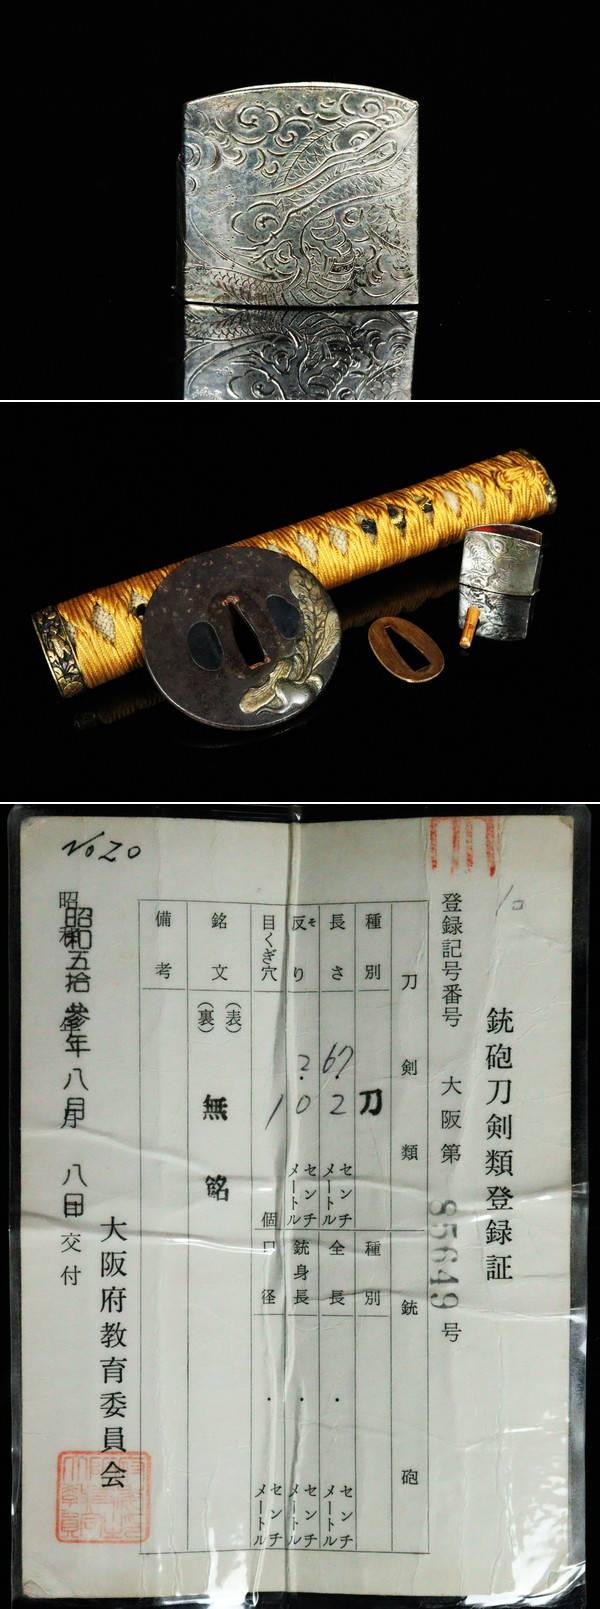 No 20
銃砲刀剣類登録証
登録記号番号 大阪第 85649 号
刀剣類 銃砲
種別 刀 種別
長さ 67.2 センチメートル 全長 . センチメートル
反り ソ 2.0 センチメートル 銃身長 . センチメートル
目くぎ穴 1 個 口径 . センチメートル
銘文 (表) (裏) 無銘
備考
昭和五拾参年八月八日交付
大阪府教育委員会